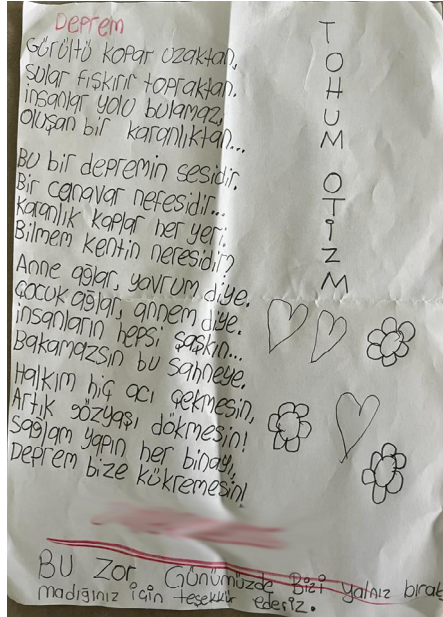 Deprem
Gürültü kopar uzaktan,
sular fışkırır topraktan.
insanlar yolu bulamaz,
oluşan bir karanlıktan...
Bu bir depremin sesidir.
Bir canavar nefesidir...
Karanlık kaplar her yeri.
Bilmem kentin neresidir?
Anne ağlar, yavrum diye.
çocuk ağlar, annem diye.
insanların hepsi şaşkın...
Bakamazsın bu sahneye.
Halkım hiç acı çekmesin,
Artık gözyaşı dökmesin!
Sağlam yapın her binayı,
Deprem bize kükremesin!
TOHUM OTİZM
BU Zor Günümüzde Bizi yalnız bırak
madığınız için teşekkür ederiz.